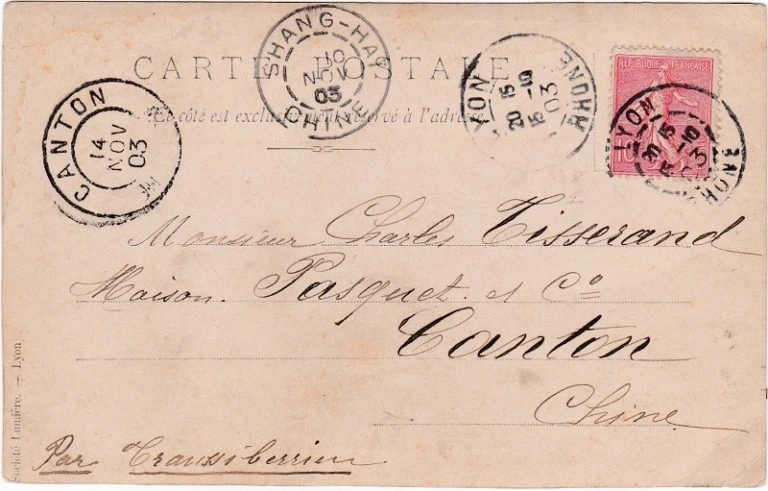 CARTE POSTALE
Ce côté est exclusivement réservé à l'adresse
SHANG-HAI
10
NOV
03
CHINE
CANTON
14
NOV
03
LYON RHONE
20 15
15 -10
03
REPUBLIQUE FRANÇAISE
10
LYON RHONE
20 15
15 -10
03
Monsieur Charles Tisserand
Maison. Pasquet. et Cº
Canton
Chine.
Par Transsiberien
Société Lumière. — Lyon